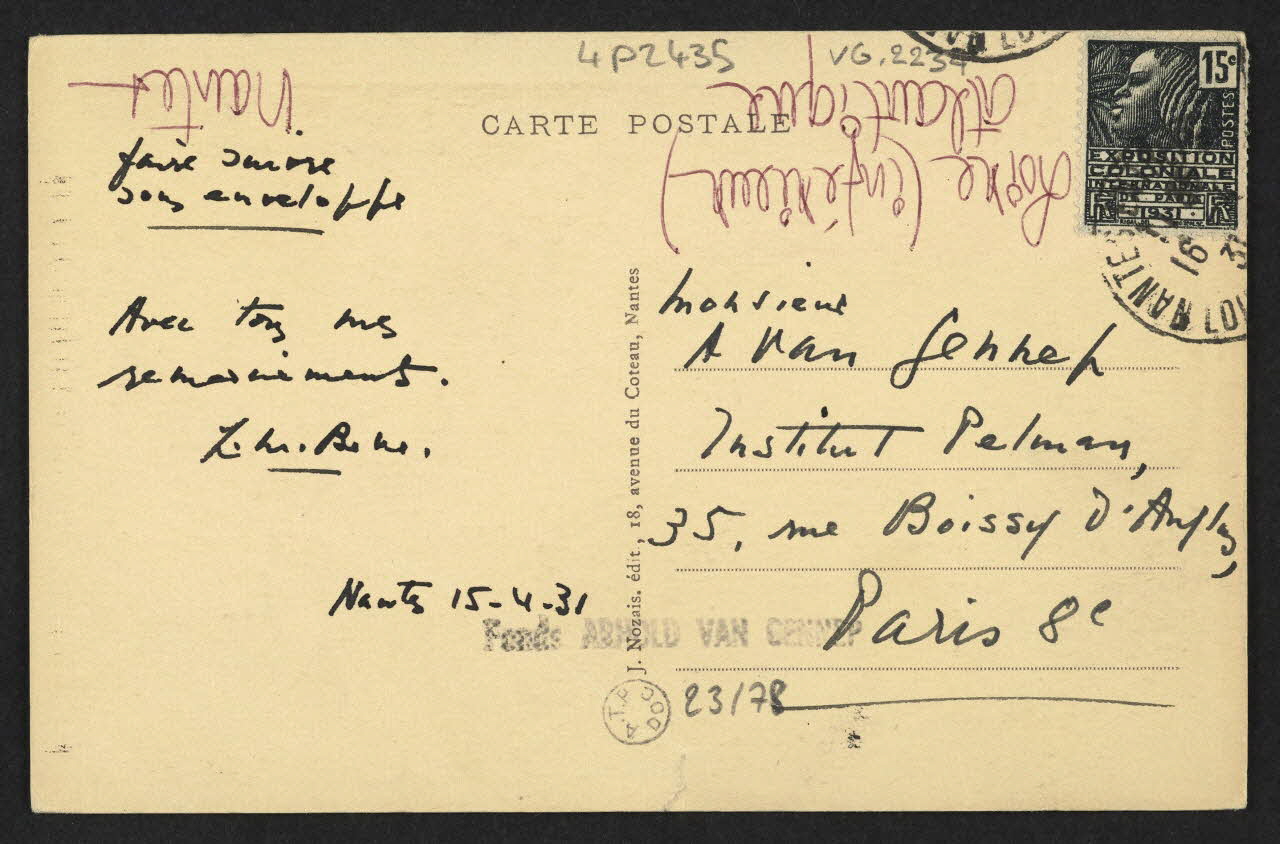 4P2435
VG.2234
CARTE POSTALE
Nantes
atlantique
Loire (inférieure)
15c
POSTES
EXPOSITION
COLONIALE
INTERNATIONALE
DE PARIS
1931
NANTES
16
31
faire suivre
sous enveloppe
Avec tous mes
remerciements.
Nantes 15-4-31
J. Nozais. édit, 18, avenue du Coteau, Nantes
Monsieur
A Van Gennep
Institut Pelman,
35, rue Boissy d'Anglas,
Paris 8e
Fonds ARNOLD VAN GENNEP
A.T.P
DOC
23/78